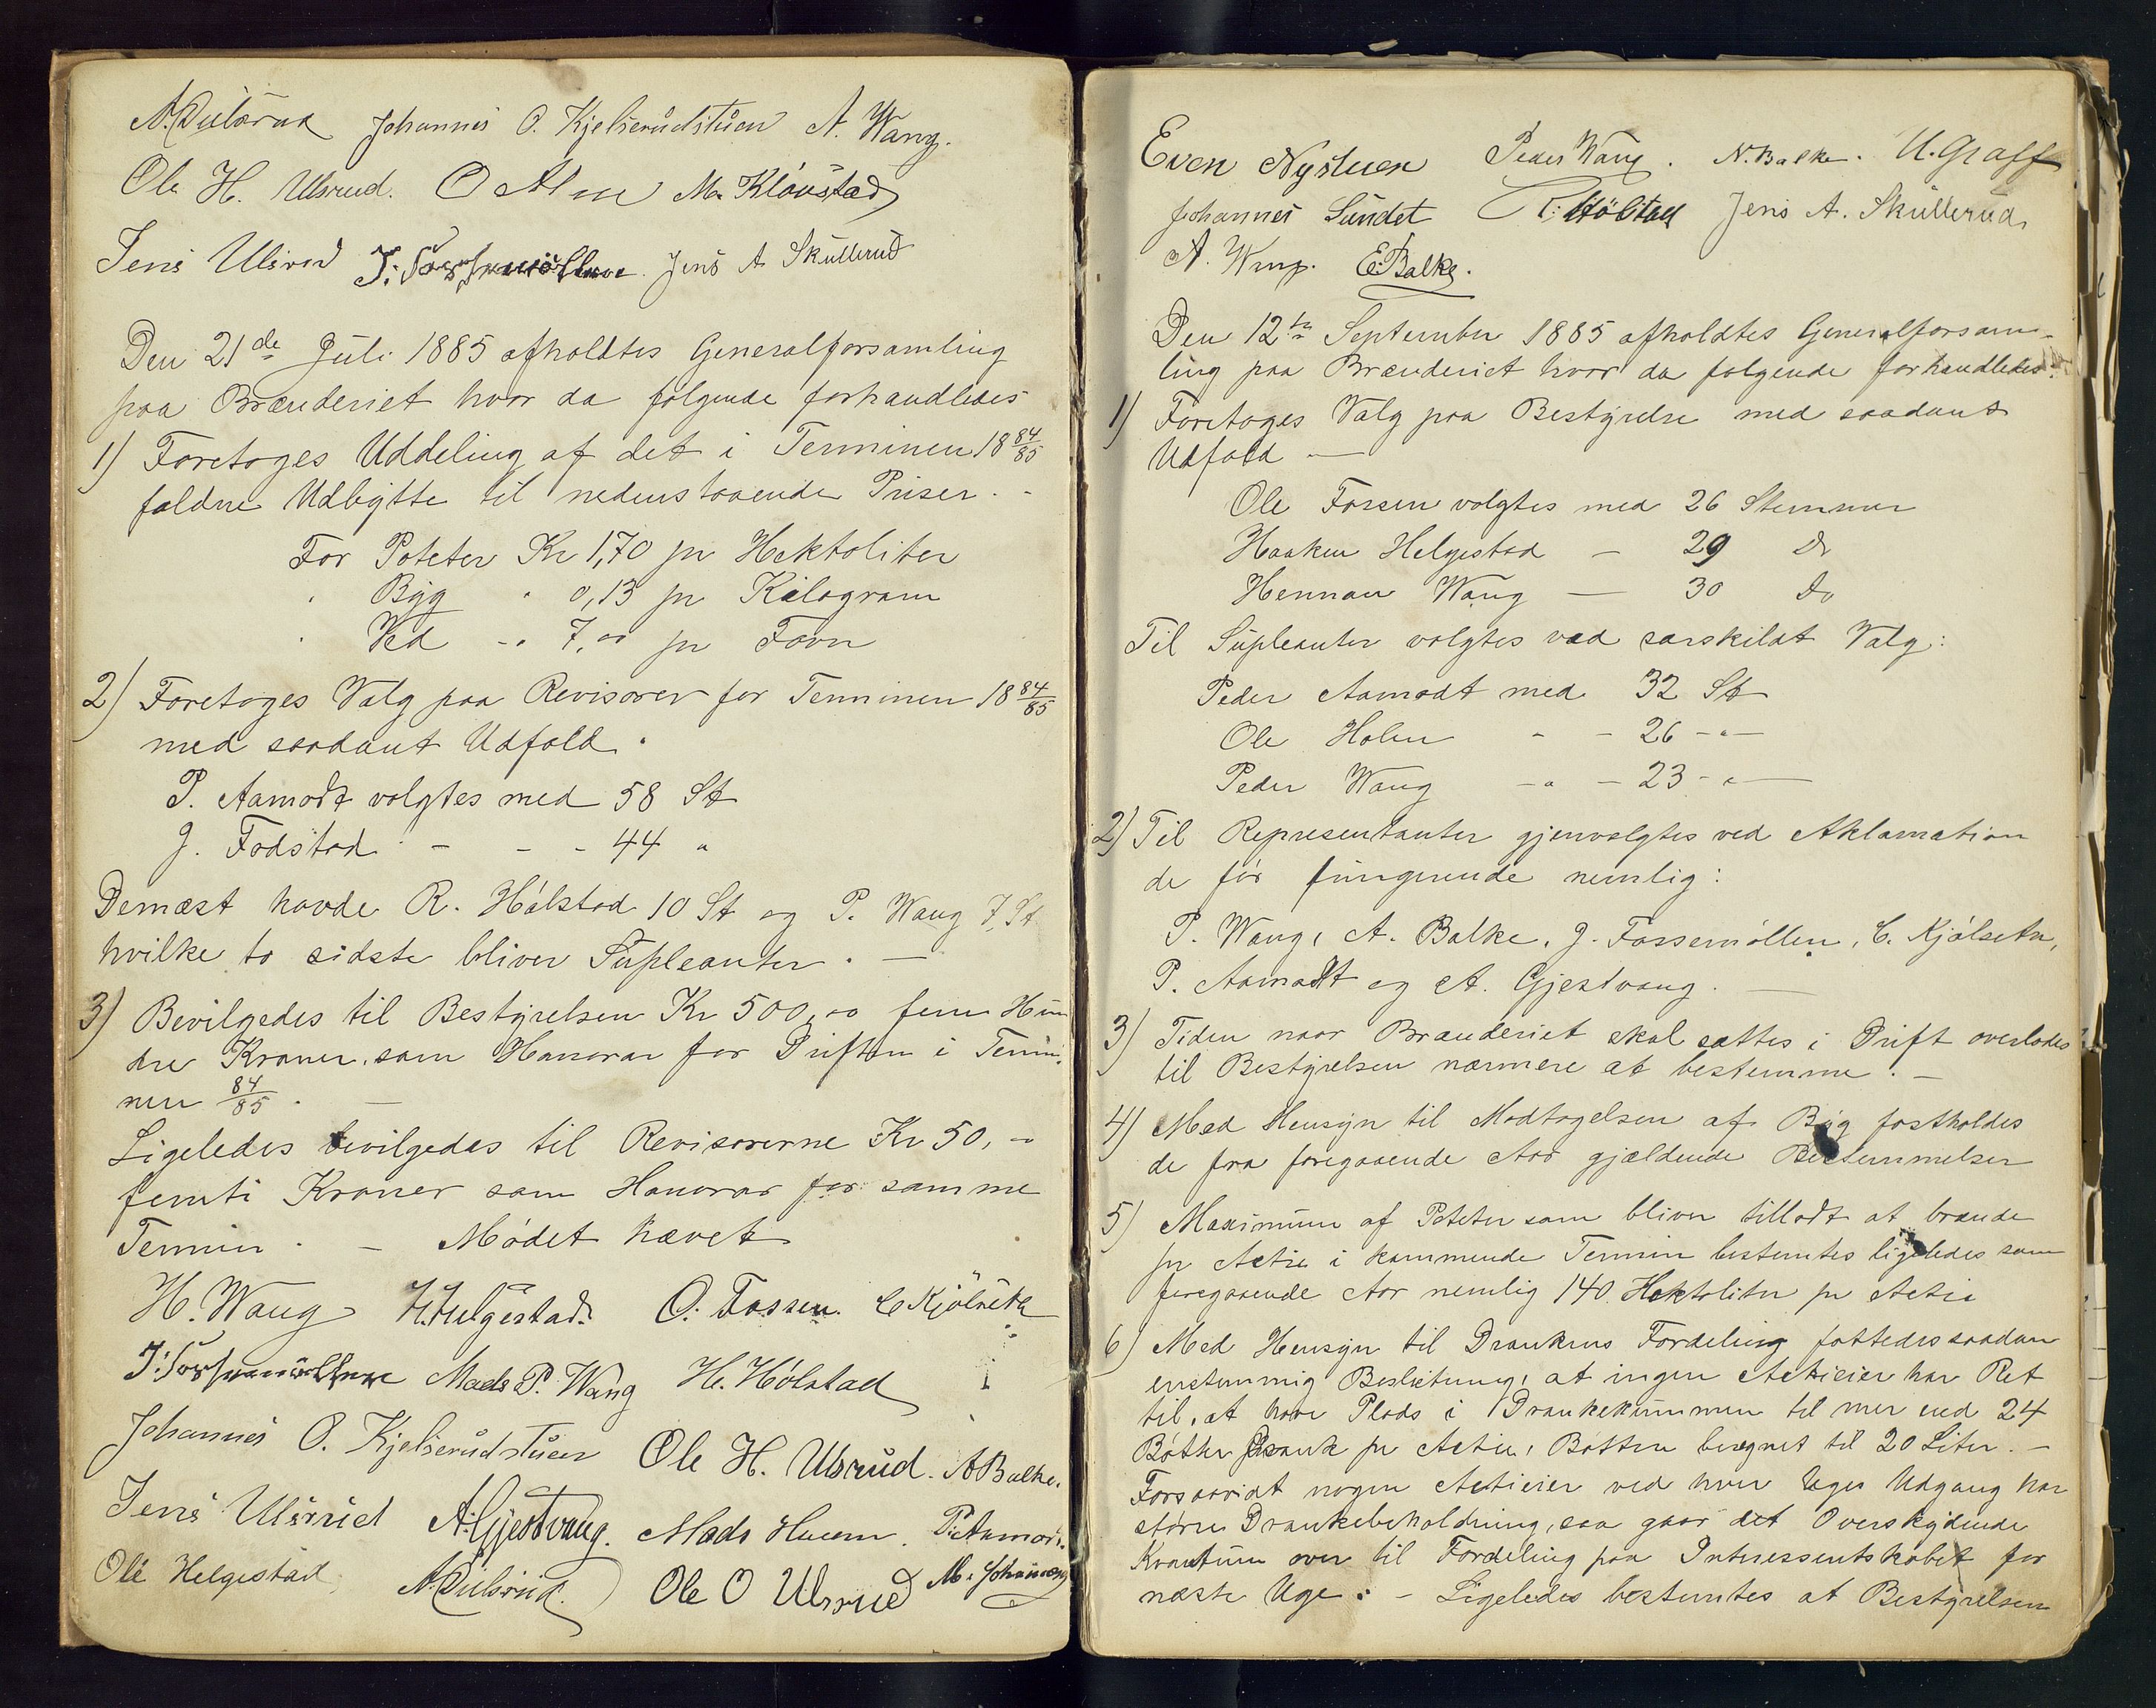 Johannes O. Kjelserudstuen A. Wang.
Ole H. Ulsrud. O Alm M. Kloustad
Jens Ulsrud J. Fossemöllen. Jens A Skullerud
Den 21de Juli 1885 afholdtes Generalforsamling
paa Brænderiet hvor da følgende forhandledes
1) Foretoges Uddeling af det i Terminen 18 84/85
faldne Udbytte til nedenstaaende Priser. -
For Poteter Kr 1,70 pr Hektoliter
" Byg " 0,13 pr Kilogram
" Ved -" 7,00 pr Favn
2) Foretoges Valg paa Revisorer for Terminen 18 84/85
med saadant Udfald.
P. Aamodt valgtes med 58 St
J. Fodstad - - - 44 "
Dernæst havde R. Hólstad 10 St og P. Wang 7 St
hvilke to sidste bliver Supleanter. —
3) Bevilgedes til Bestyrelsen Kr 500,00 fem Hun
dre Kroner som Honorar for Driften i Termi-
nen 84/85. —
Ligeledes bevilgedes til Revisorerne Kr 50,-
femti Kroner som Honorar for samme
Termin. - Mödet hævet
H. Wang H. Helgestad. O. Fossen. C Kjölseth
J. Fossemöllen Mads P. Wang H. Hólstad
Johannes O. Kjelserudstuen Ole H. Ulsrud. A Balke.
Jens Ulsrud A. Gjestvang. Mads Huem. P. Aamodt.
Ole Helgestad Ole O Ulsrud M. Johansen
Even Nystuen Peder Wang. N. Balke. U. Graff
Johannes Sundet R. Hólstad Jens A. Skullerud
A. Wang. E. Balke.
Den 12te September 1885 afholdtes Generalforsam-
ling paa Brænderiet hvor da følgende forhandledes.
1) Foretoges Valg paa Bestyrelse med saadant
Udfald —
Ole Fossen valgtes med 26 Stemmer
Haaken Helgestad — 29 Do
Herman Wang — 30 Do
Til Supleanter valgtes ved særskildt Valg:
Peder Aamodt med 32 St
Ole Holen - - 26 -"-
Peder Wang -"- 23 -"-
2) Til Representanter gjenvalgtes ved Aklamation
de før fungerende nemlig:
P. Wang, A. Balke, J. Fossemöllen, C. Kjólseth,
P. Aamodt og A. Gjestvang. —
3) Tiden naar Brænderiet skal sættes i Drift overlodes
til Bestyrelsen nærmere at bestemme. —
4) Med Hensyn til Modtagelsen af Byg fastholdes
de fra foregaaende Aar gjældende Bestemmelser
5) Maximum af Poteter som bliver tilladt at brænde
pr Actie i kommende Termin bestemtes ligeledes som
foregaaende Aar nemlig 140 Hektoliter pr Actie
6) Med Hensyn til Drankens Fordeling fattedes saadan
enstemmig Beslutning, at ingen Actieeier har Ret
til, at have Plads i Drankekummen til mer end 24
Bøtter Drank pr Actie, Bøtten beregnet til 20 Liter. —
Forsaavidt nogen Actieeier ved hver Uges Udgang har
større Drankebeholdning, saa gaar det Overskydende
Kvantum over til Fordeling paa Interessentskabet for
næste Uge. - Ligeledes bestemtes at Bestyrelsen